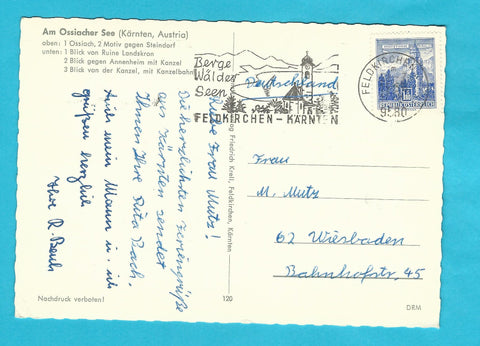 Am Ossiacher See (Kärnten, Austria)
oben: 1 Ossiach, 2 Motiv gegen Steindorf
unten: 1 Blick von Ruine Landskron
2 Blick gegen Annenheim mit Kanzel
3 Blick von der Kanzel, mit Kanzelbahn
Berge
Wälder
Seen
FELDKIRCHEN-KÄRNTEN
Deutschland
FELDKIRCHEN
9560
Liebe Frau Mutz!
Die herzlichsten Feriengrüße
aus Kärnten sendet
Ihnen Ihre Ruta Bach.
Auch mein Mann u. ich
grüßen herzlich
Ihre R.
Verlag Friedrich Knell, Feldkirchen, Kärnten
Frau
M. Mutz
62 Wiesbaden
Bahnhofstr. 45
Nachdruck verboten!
120
DRM